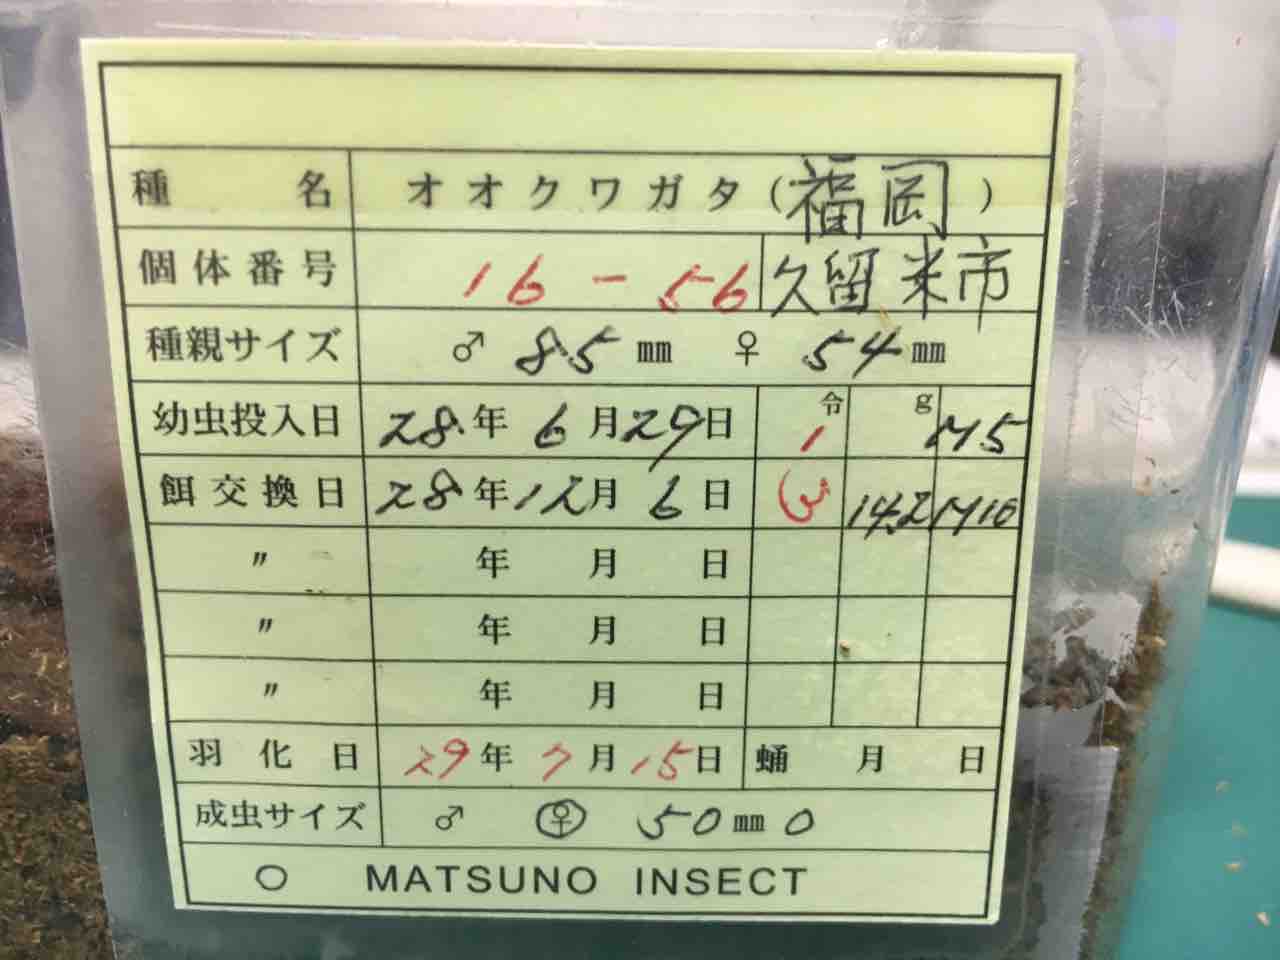 種名 オオクワガタ(福岡)
個体番号 16-56 久留米市
種親サイズ ♂ 85 mm ♀ 54 mm
幼虫投入日 28年 6月29日 1令 g M5
餌交換日 28年12月 6日 3 14.2 M10
〃 年 月 日
〃 年 月 日
〃 年 月 日
羽化日 29年 7月 15日 蛹 月 日
成虫サイズ ♂ ♀ 50 mm 0
○ MATSUNO INSECT